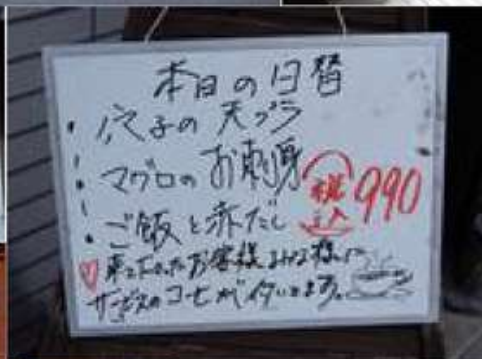 本日の日替
穴子の天プラ
マグロのお刺身
ご飯と赤だし
税込 990
お客様みな様に
サービスのコーヒーが付いてます。